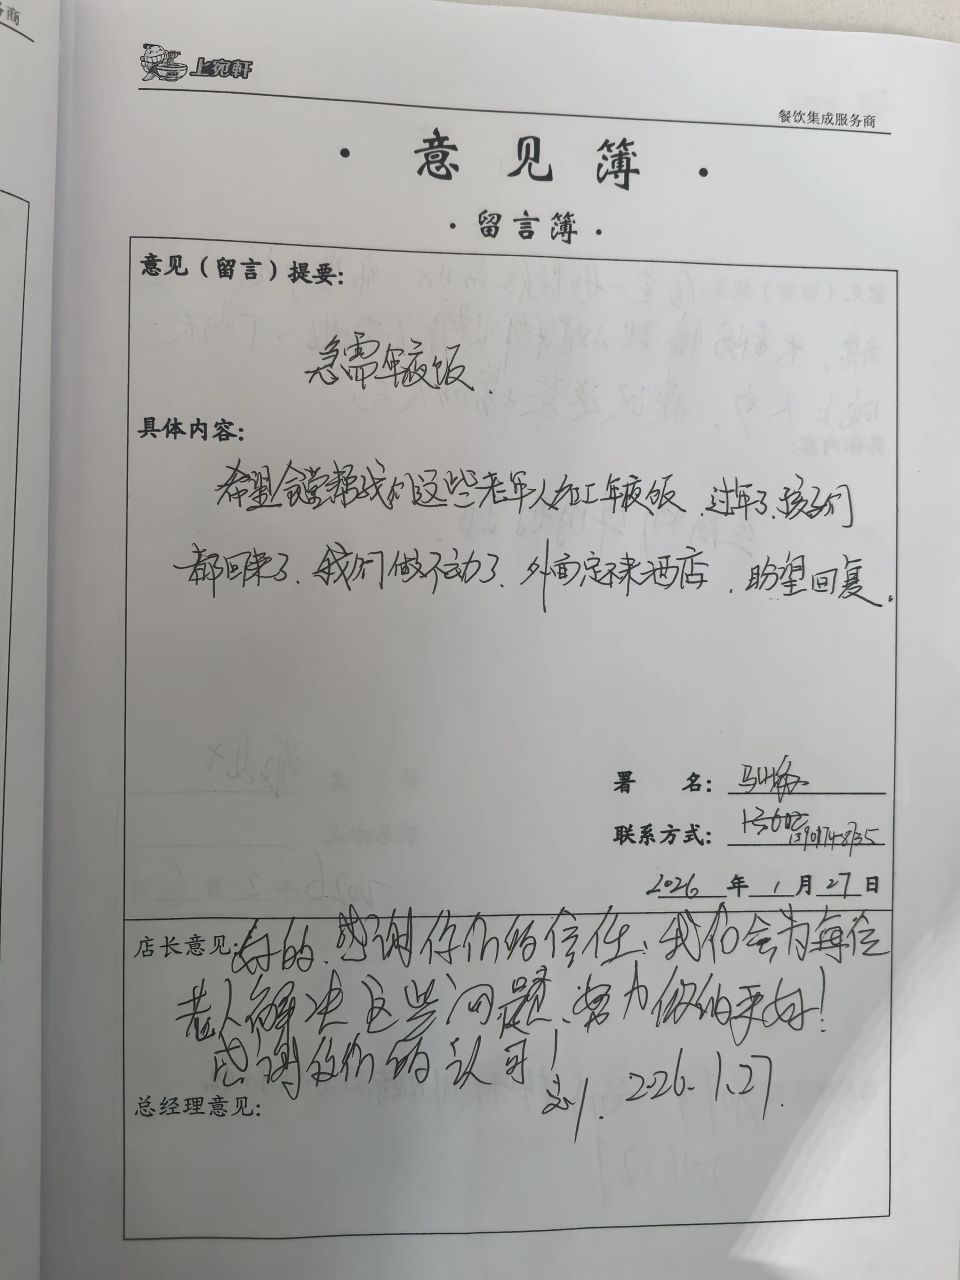 务商
上宛軒
餐饮集成服务商
· 意见簿 ·
· 留言簿 ·
意见（留言）提要：
急需年夜饭.
具体内容：
希望食堂帮我们这些老年人加工年夜饭.过年了,孩子们
都回来了、我们做不动了、外面定不来酒店.盼望回复.
署 名：
联系方式：13901748735
2026年1月27日
店长意见：好的、感谢你们的信任、我们会为每位
老人解决这些问题、努力做的更好！
感谢你们的认可！
2026.1.27.
总经理意见：